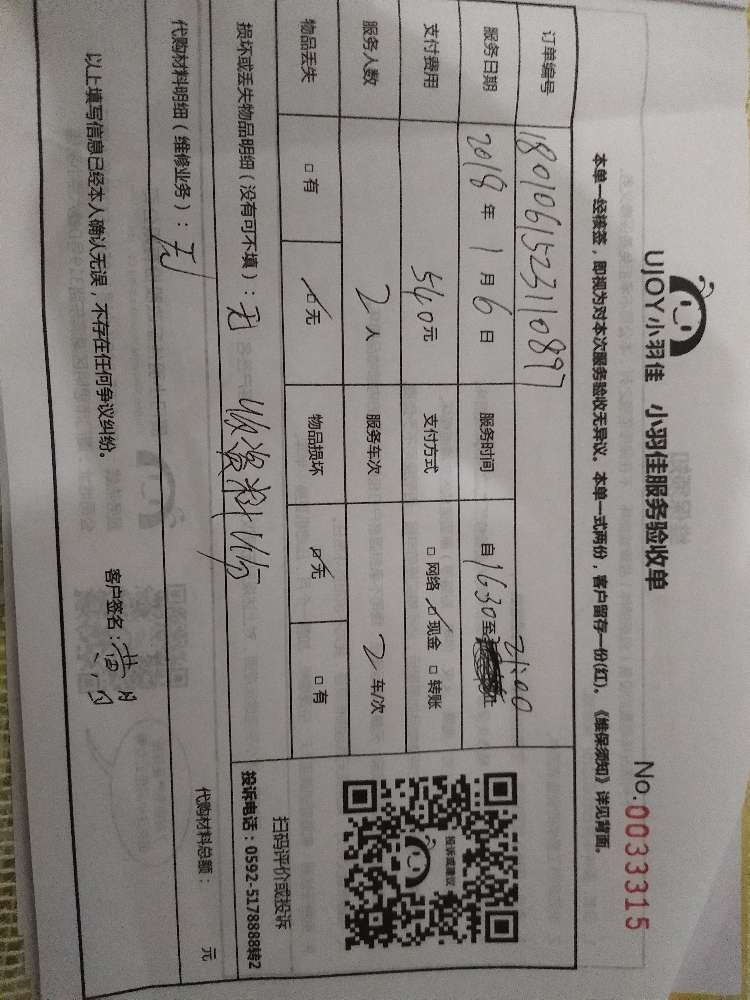 UJOY小羽佳 小羽佳服务验收单
No.0033315
本单一经接签，即视为对本次服务验收无异议。本单一式两份，客户留存一份(红)。《维保须知》详见背面。
订单编号 1801061523110897
服务日期 2018年1月6日 服务时间 自1630至21:00
支付费用 540元 支付方式 □网络 ☑现金 □转账
服务人数 2人 服务车次 2车/次
物品丢失 □有 ☑无 物品损坏 ☑无 □有
损坏或丢失物品明细（没有可不填）：无 收资料1份
代购材料明细（维修业务）：无 代购材料总额： 元
以上填写信息已经本人确认无误，不存在任何争议纠纷。
客户签名：黄
投诉或建议
扫码评价或投诉
投诉电话：0592-5178888转2